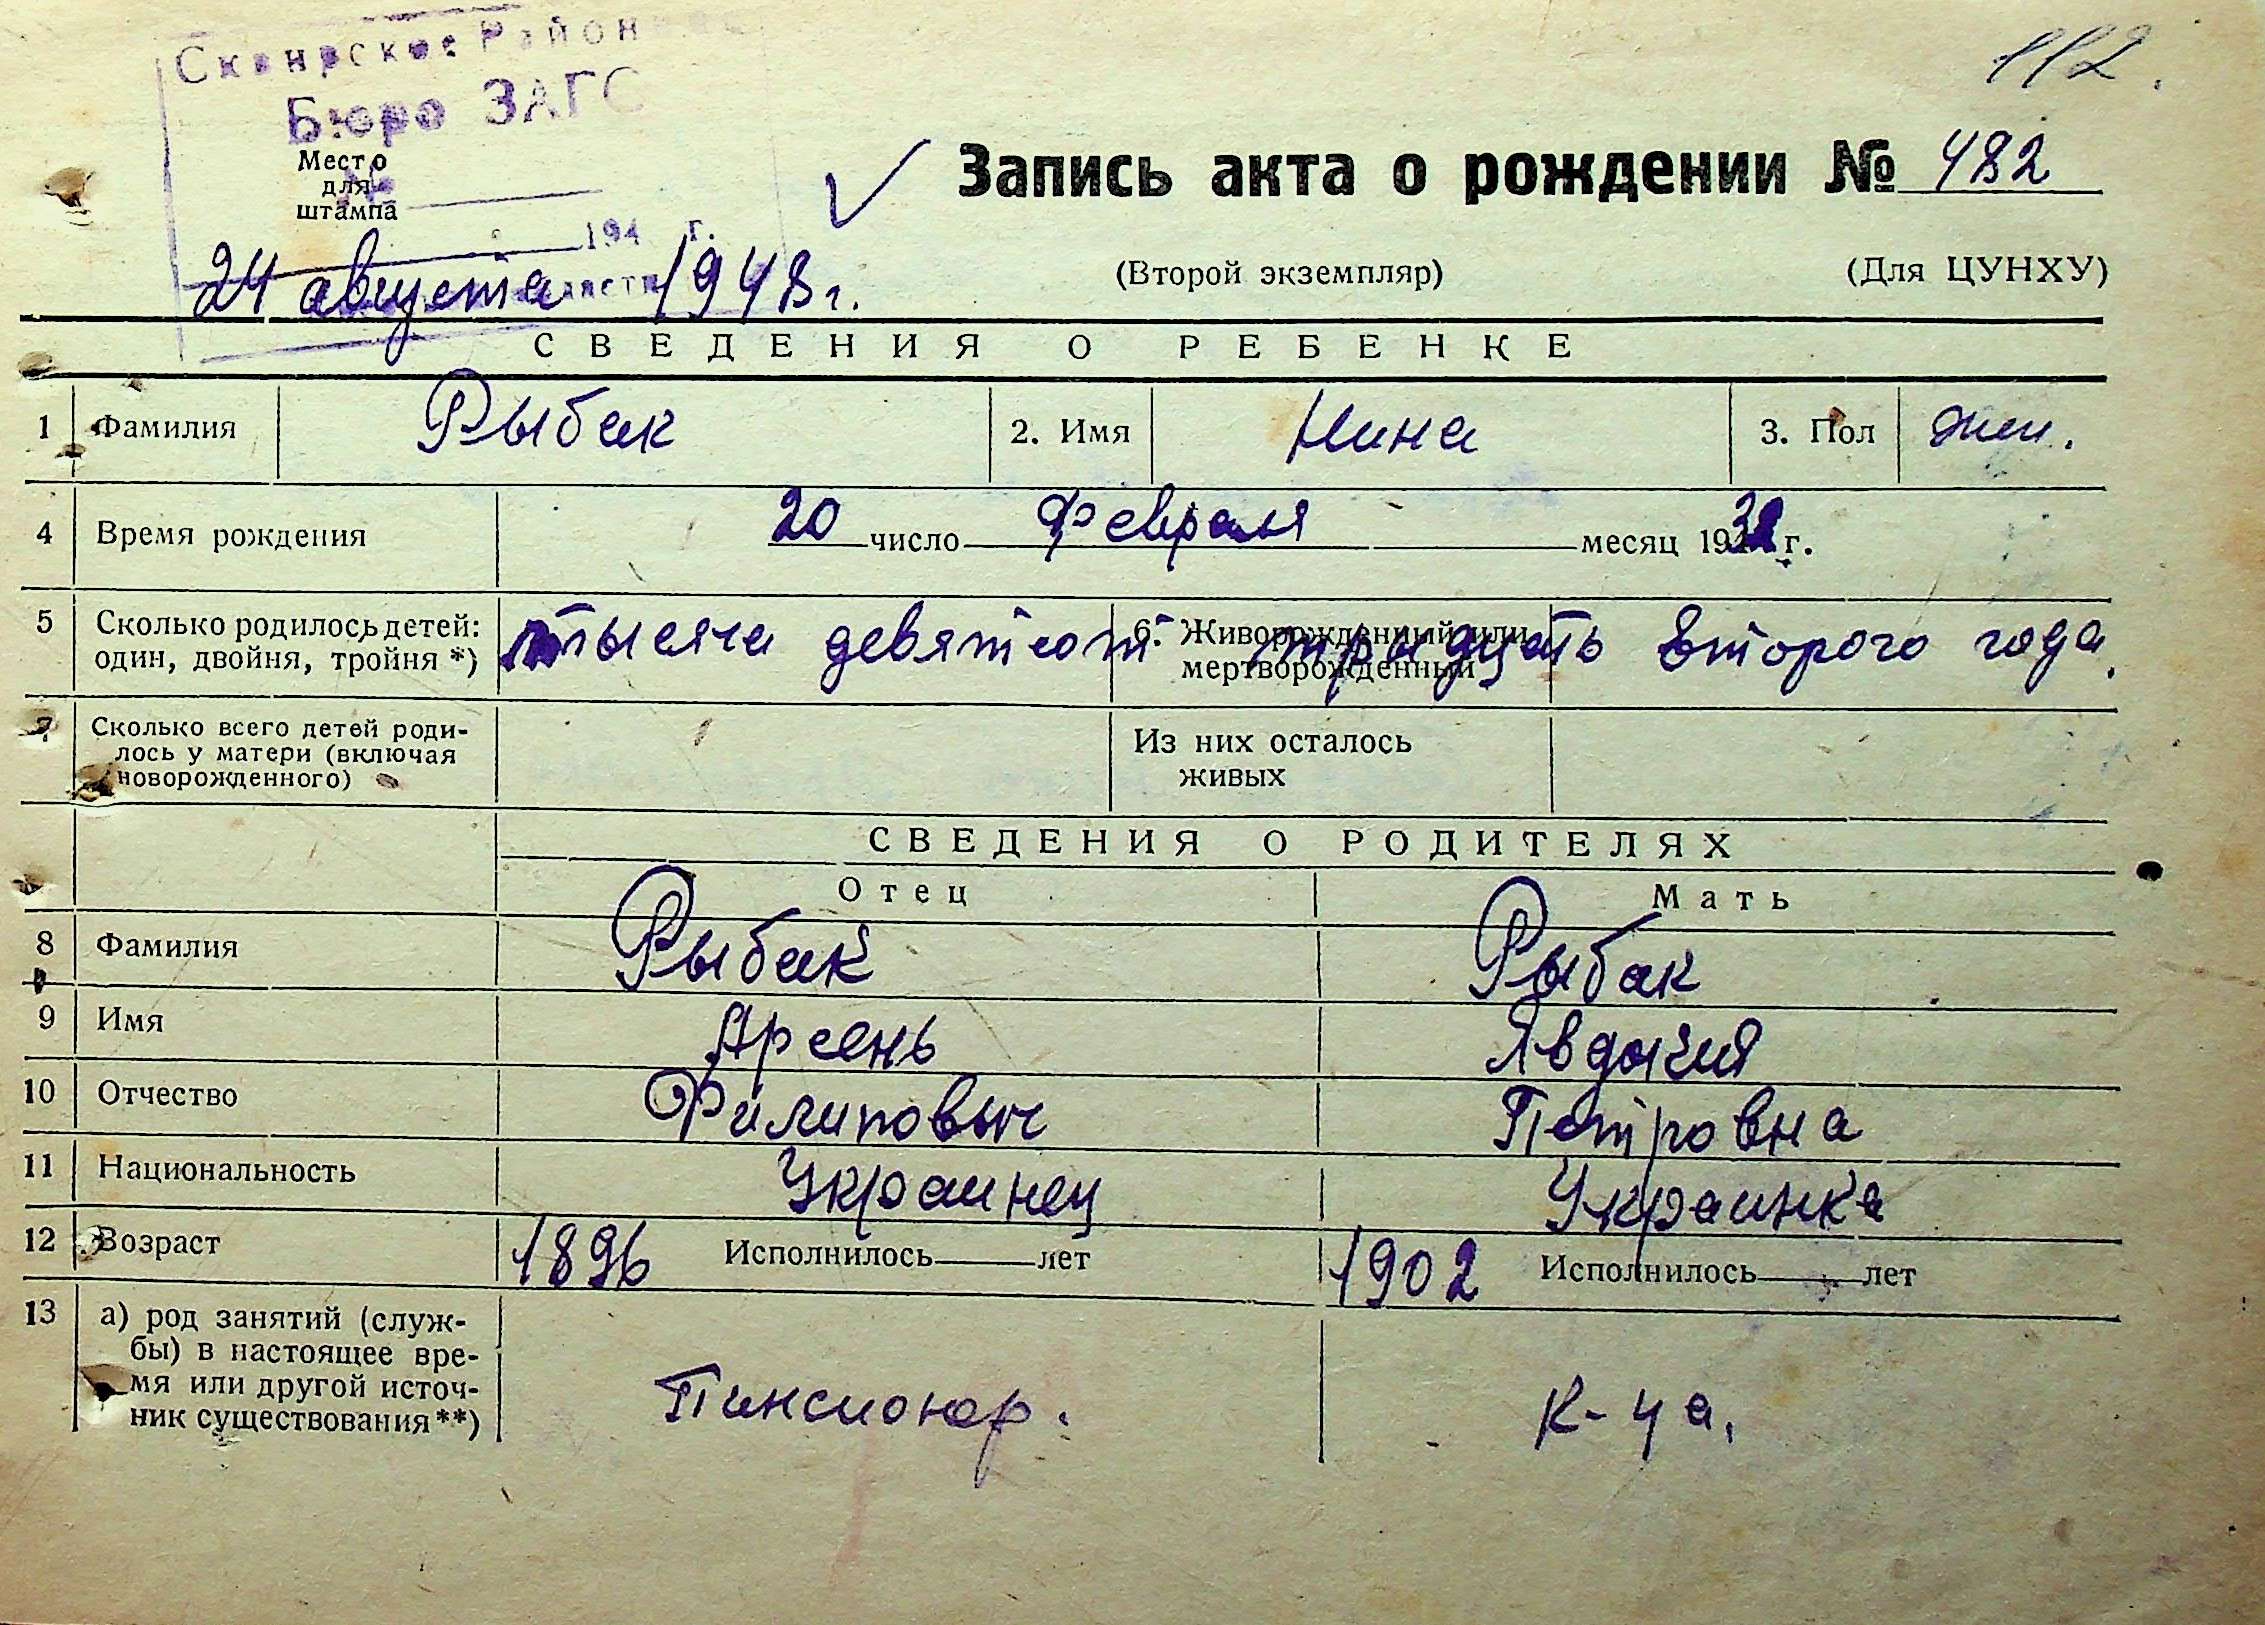 112.
Сквирское Район
Бюро ЗАГС
Место
для
штампа
№
194 г.
24 августа 1948 г.
Запись акта о рождении № 482
(Второй экземпляр) (Для ЦУНХУ)
СВЕДЕНИЯ О РЕБЕНКЕ
1 Фамилия Рыбак 2. Имя Нина 3. Пол жен.
4 Время рождения 20 число февраля месяц 1932 г.
5 Сколько родилось детей: 6. Живорожденный или
один, двойня, тройня *) мертворожденный
тысяча девятсот тридцать второго года.
7 Сколько всего детей роди-
лось у матери (включая
новорожденного)
Из них осталось
живых
СВЕДЕНИЯ О РОДИТЕЛЯХ
Отец Мать
8 Фамилия Рыбак Рыбак
9 Имя Арсень Явдокия
10 Отчество Филиповыч Петровна
11 Национальность Украинец Украинка
12 Возраст 1896 Исполнилось лет 1902 Исполнилось лет
13 а) род занятий (служ-
бы) в настоящее вре-
мя или другой источ-
ник существования **)
Пинсионер. К-ца.